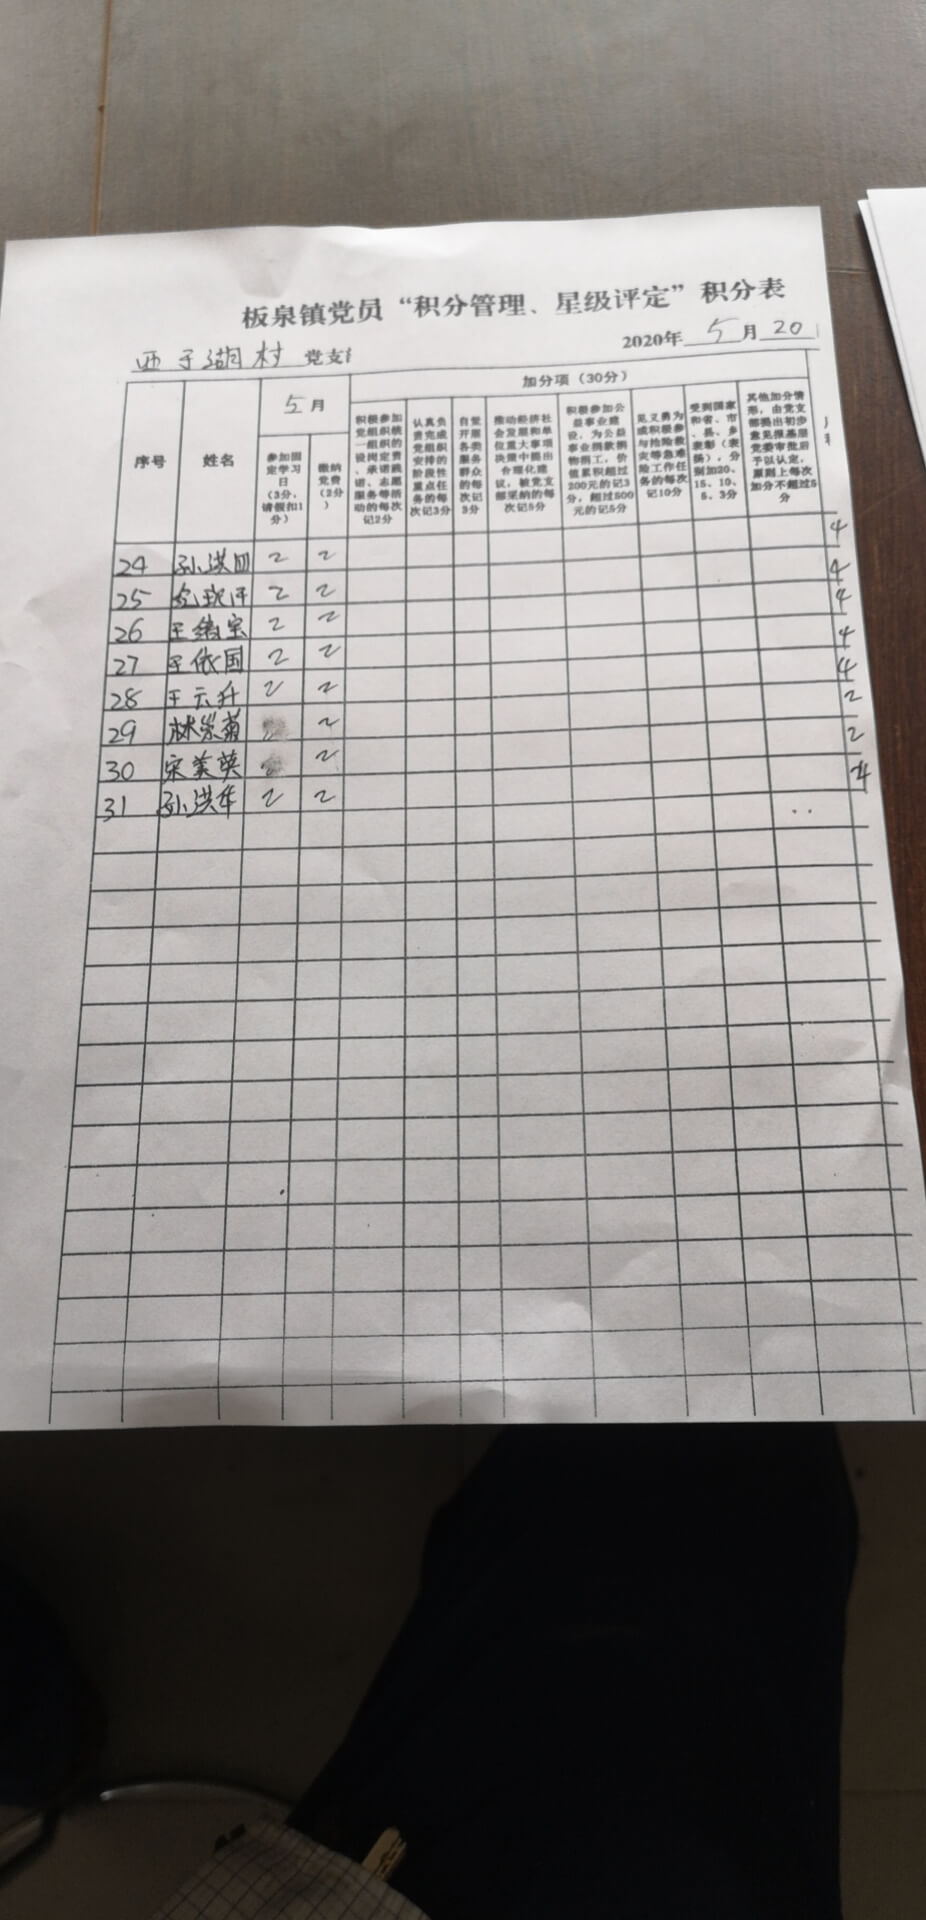 板泉镇党员“积分管理、星级评定”积分表
西于湖村 党支
2020年 5 月 20
序号 姓名 5 月 加分项（30分）
参加固定学习日（3分，请假扣1分）
缴纳党费（2分）
积极参加党组织统一组织的设岗定责、承诺践诺、志愿服务等活动的每次记2分
认真负责完成党组织安排的阶段性重点任务的每次记3分
自觉开展各类服务群众的每次记3分
推动经济社会发展和单位重大事项决策中提出合理化建议，被党支部采纳的每次记5分
积极参加公益事业建设，为公益事业捐款捐物捐工，价值累积超过200元的记3分，超过500元的记5分
见义勇为或积极参与抢险救灾等急难险工作任务的每次记10分
受到国家和省、市、县、乡表彰（表扬），分别加20、15、10、5、3分
其他加分情形，由党支部提出初步意见报基层党委审批后予以认定，原则上每次加分不超过5分
24 孙洪四 2 2 4
25 2 2 4
26 王绪宝 2 2 4
27 王依国 2 2 4
28 王云升 2 2 4
29 林崇菊 2 2
30 宋美英 2 2
31 孙洪华 2 2 4